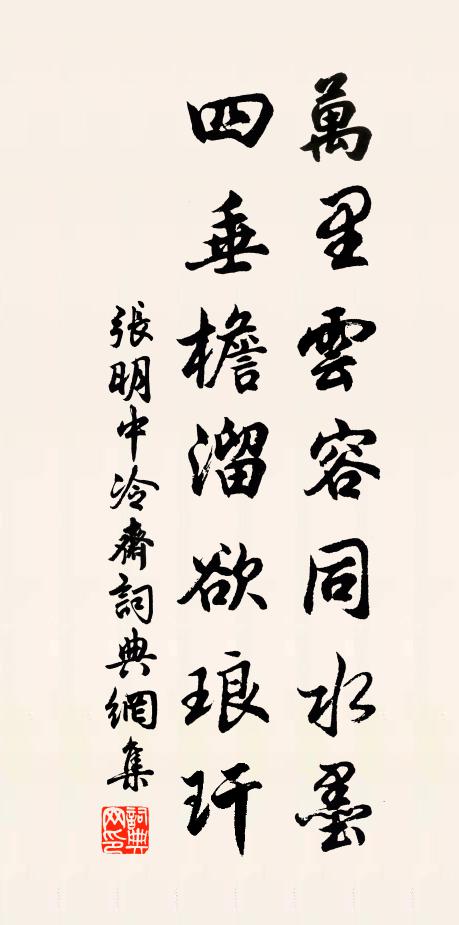 萬里雲容同水墨
四垂檐溜欲琅玕
張明中冷齋詞典網集
詞典网印